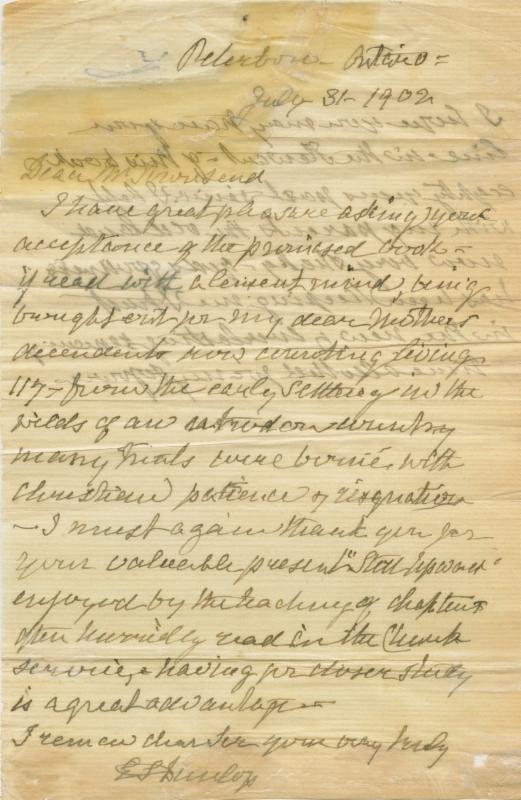 Peterboro - Ontario =
July 31 - 1902
Dear Mr Townsend
I have great pleasure asking your
acceptance of the promised book -
if read with a lement mind, being
brought out for my dear Mothers
decendents now counting living
117 - from the early Settling in the
wilds of an untrodon country
many trials were borne with
Christian patience & resignation
- I must again thank you for
your valuable present "Still Upward"
enjoyed by the teaching of chapters
often hurriedly read in the Church
service, & having for closer study
is a great advantage -
I remain dear Sir yours very truly
E S Dunlop